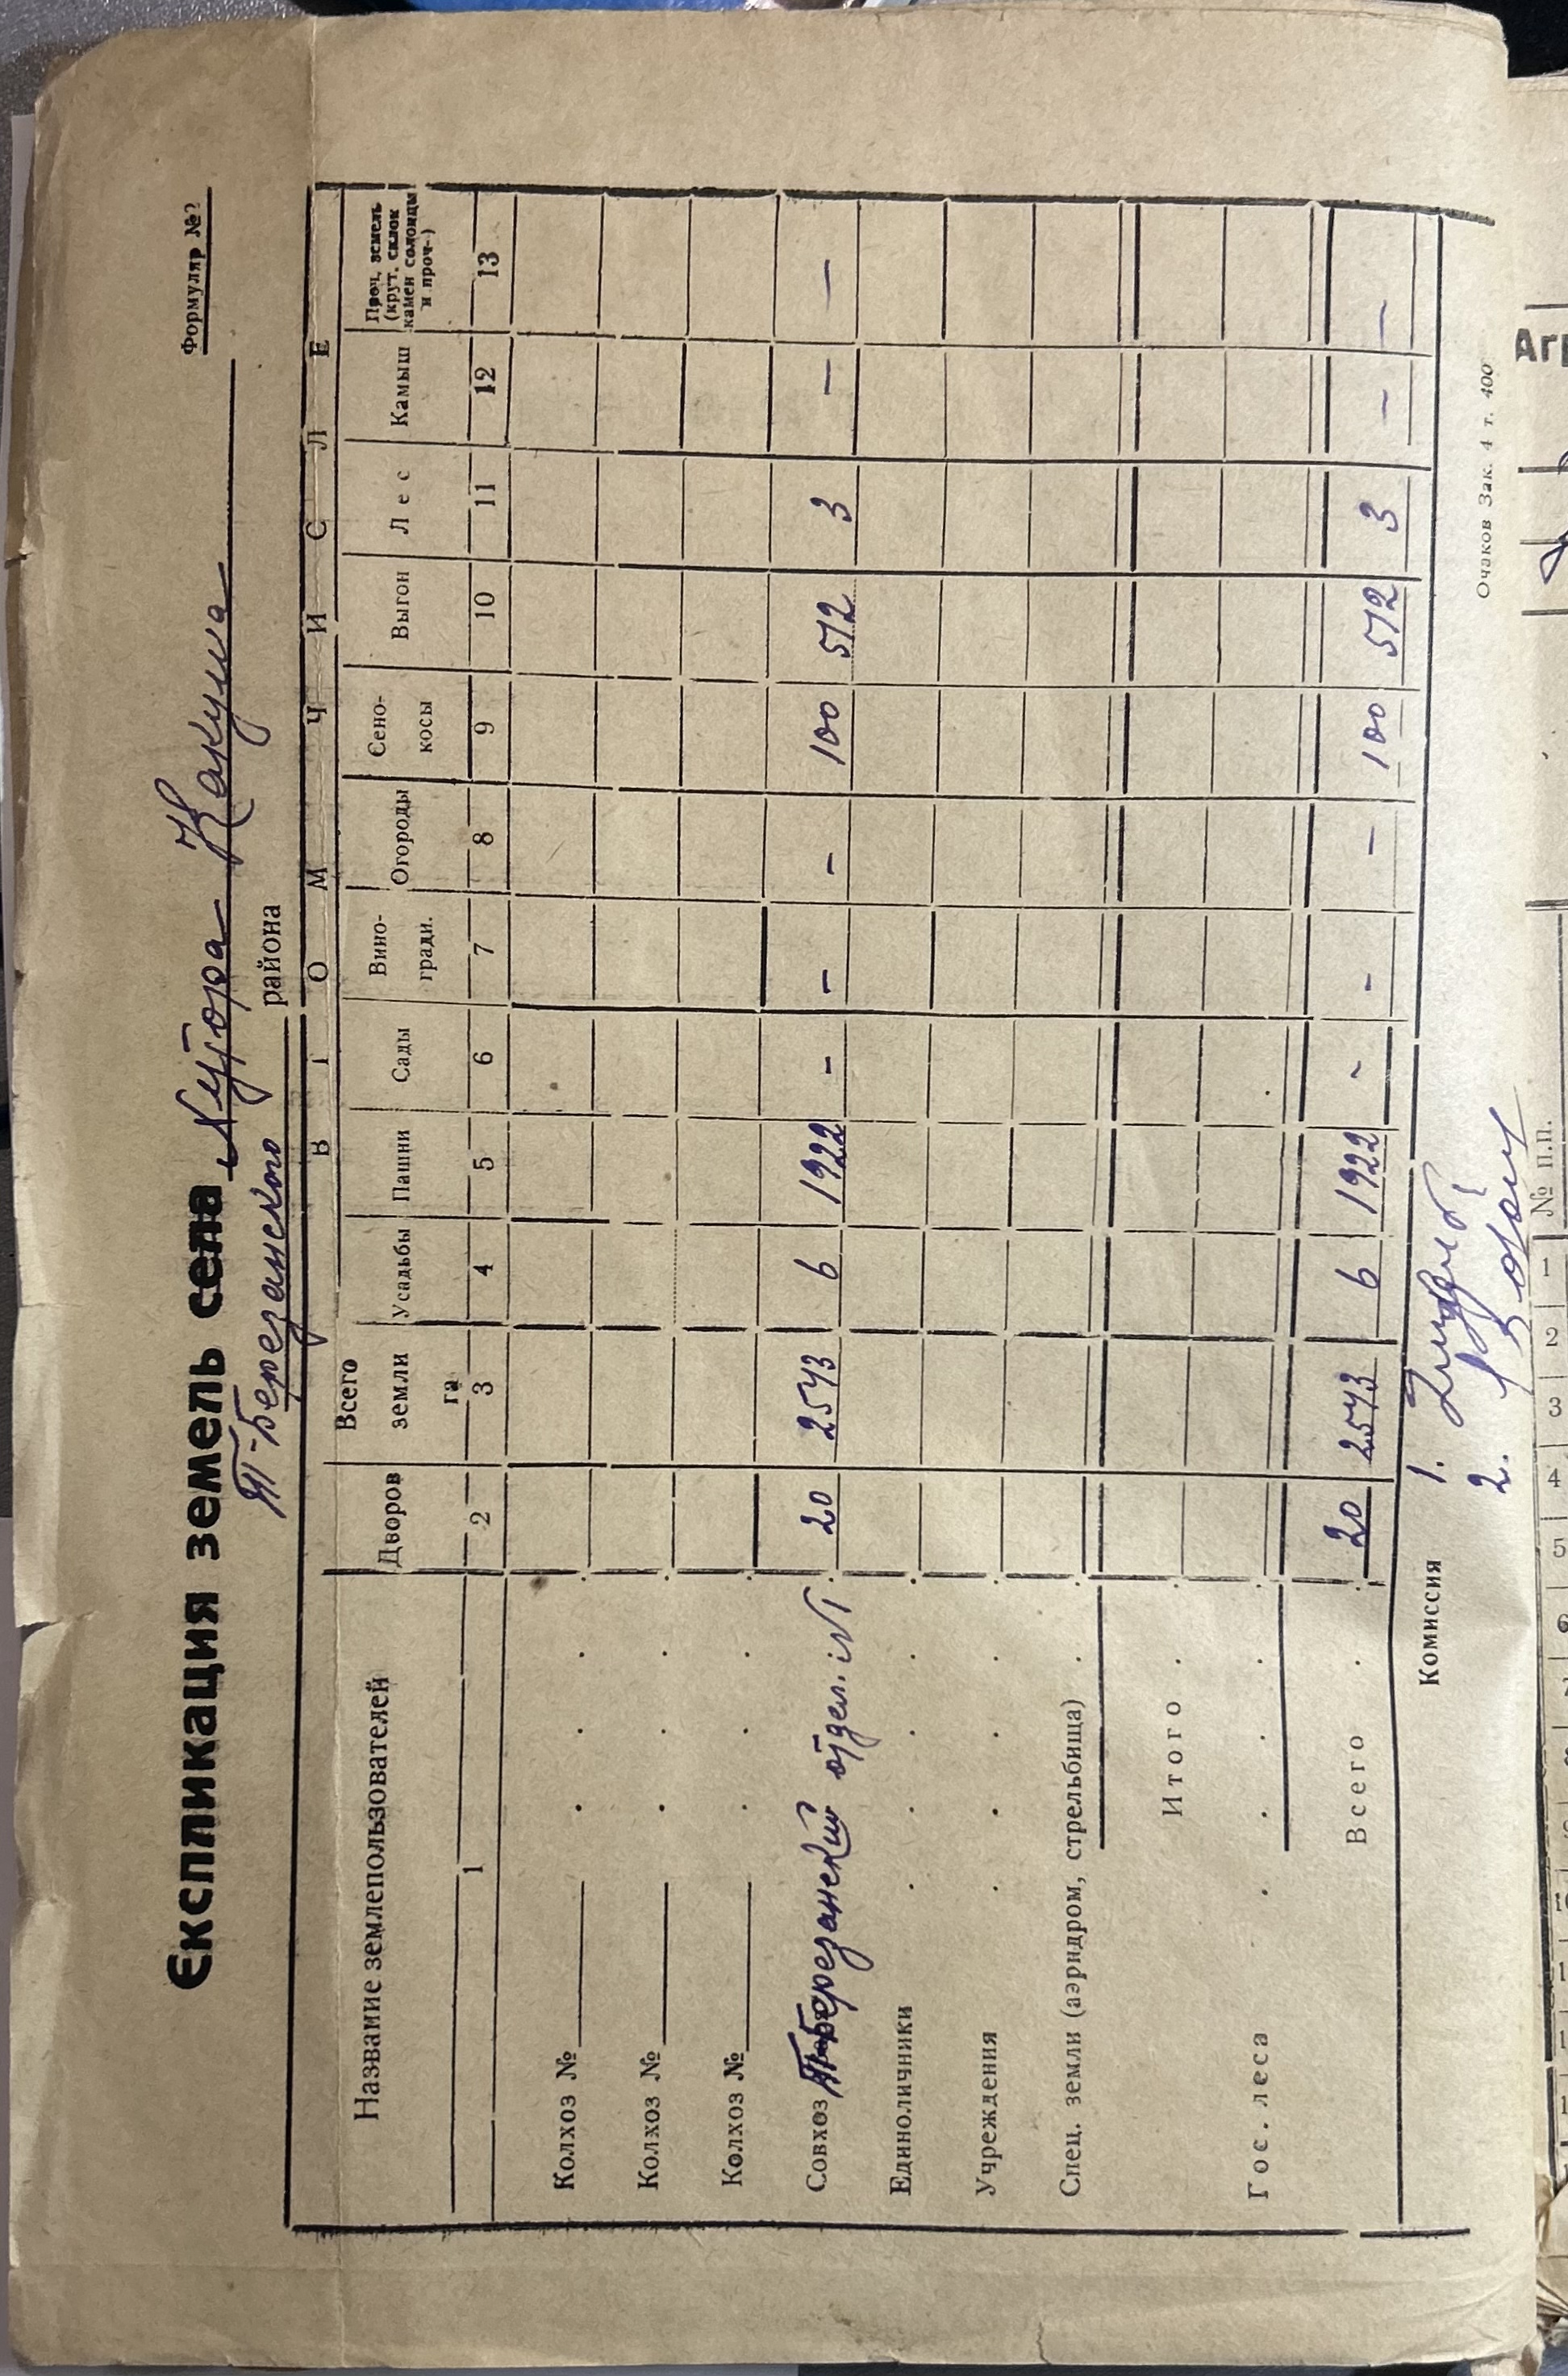 Формуляр №2
Експликация земель села хутора Какума
Т-Березанского района
В Т О М Ч И С Л Е
Название землепользователей Дворов Всего земли га Усадьбы Пашни Сады Вино-гради. Огороды Сено-косы Выгон Лес Камыш Проч. земель (крут. склок камен солонцы и проч-)
1 2 3 4 5 6 7 8 9 10 11 12 13
Колхоз №
Колхоз №
Колхоз №
Совхоз Т-Березанский отдел. №1 20 2573 6 1922 - - - 100 572 3 - -
Единоличники
Учреждения
Спец. земли (аэрндром, стрельбища)
Итого
Гос. леса
Всего 20 2573 6 1922 - - - 100 572 3 - -
Комиссия 1.
2.
Очаков Зак. 4 т. 400
№ п.п. 1 2 3 4 5 6